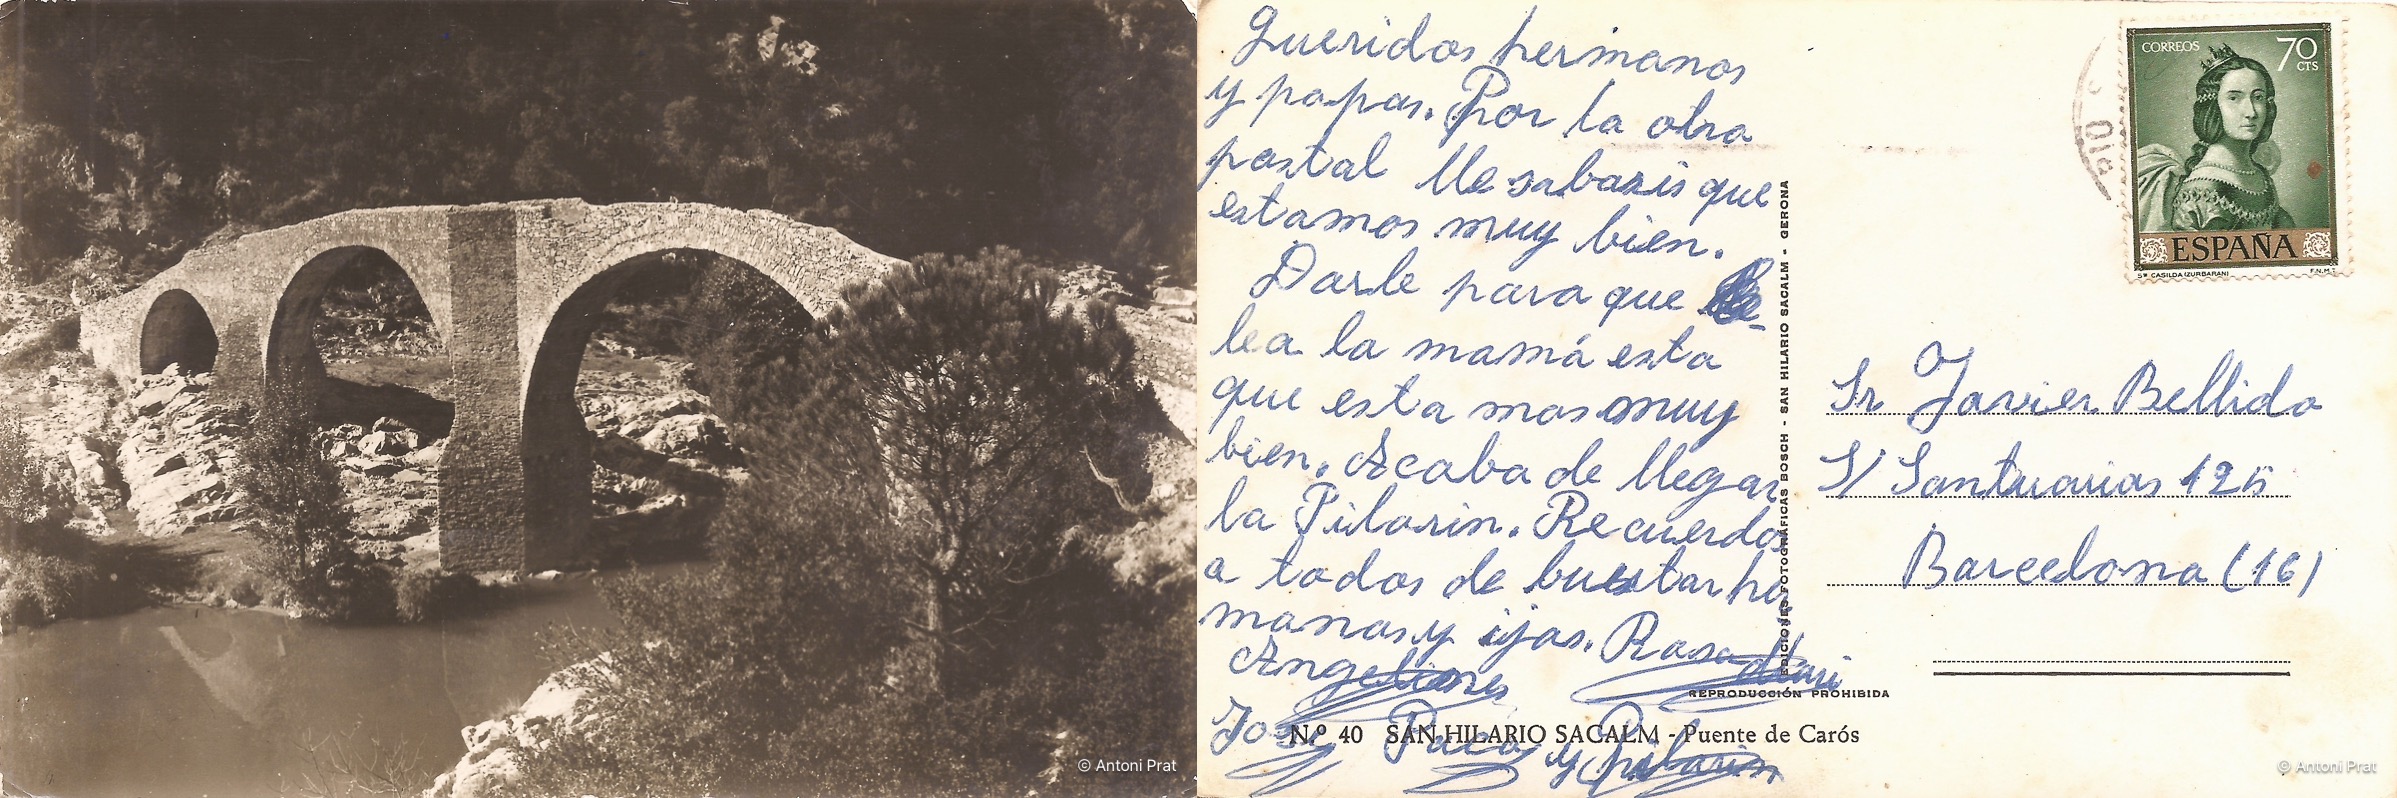 © Antoni Prat
Queridos hermanos
y papas. Por la otra
postal lle sabaris que
estamos muy bien.
Darle para que
lea la mamá esta
que esta mos muy
bien. Acaba de llegar
la Pilarin. Recuerdos
a todos de buestar he
manas y ijas. Rosa Mari
Angelines
Jose Paco y Pilarin
Nº 40 SAN HILARIO SACALM - Puente de Carós
EDICIONES FOTOGRÁFICAS BOSCH - SAN HILARIO SACALM - GERONA
REPRODUCCIÓN PROHIBIDA
CORREOS 70 CTS
ESPAÑA
Sª CASILDA (ZURBARAN) F.N.M.T.
Sr Javier Bellido
S/ Santuarios 125
Barcelona (16)
© Antoni Prat